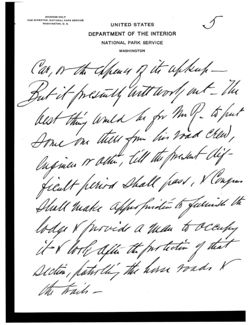 5
UNITED STATES
DEPARTMENT OF THE INTERIOR
NATIONAL PARK SERVICE
WASHINGTON
Car, or the expense of its upkeep —
But it presently will work out — The
best thing would be for Mr R. to put
some one there from his road crew,
engineer or other, till the present dif-
ficult period shall pass, & Congress
shall make appropriation to furnish the
lodge & provide a man to occupy
it & look after the protection of that
section, patrolling the horse roads &
the trails —